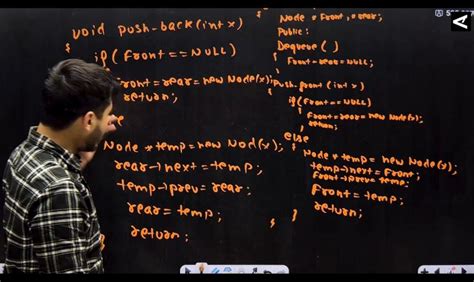 void push-back(int x)
{
if( Front == NULL)
{
Front = rear = new Node(x);
return;
else
Node * temp = new Node(x);
rear→next = temp;
temp→prev = rear;
rear = temp;
return;
}
Node * Front, * rear;
Public:
Dequeue( )
{ Front = rear = NULL;
}
Push-front (int x)
{
if(Front == NULL)
{ Front = rear = new Node(x);
return;
}
else
{
Node * temp = new Node(x);
temp→next = Front;
Front→prev = temp;
Front = temp;
return;
}
}